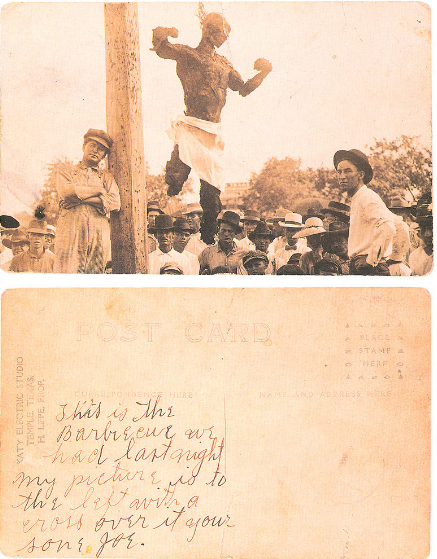 POST CARD
PLACE
STAMP
HERE
CORRESPONDENCE HERE
NAME AND ADDRESS HERE
KATY ELECTRIC STUDIO
TEMPLE TEXAS
H. LIPPE PROP.
This is the
Barbecue we
had last night
my picture is to
the left with a
cross over it your
sone Joe.